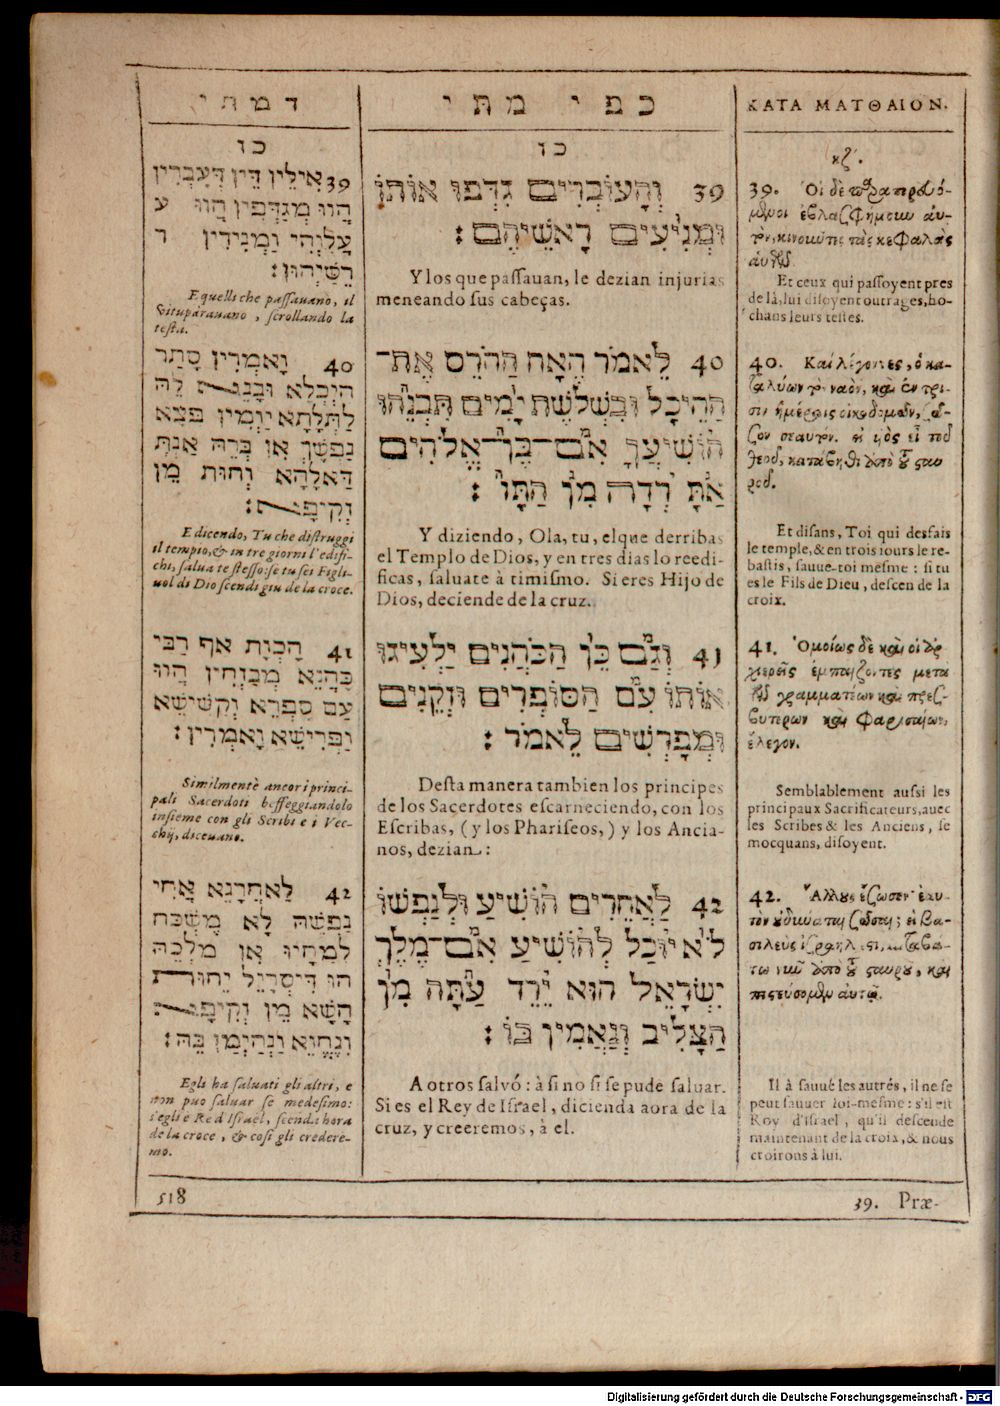 דמתי
כו
39 אִילֵין דֵּין דְּעָבְרִין
הֲווֹ מְגַדְּפִין הֲווֹ ע
עֲלוֹהִי וַמְנִידִין ר
רֵשַׁיְהוּן:
E quelli che passauano, il
vituparauano, scrollando la
testa.
40 וָאמְרִין סָתַר
הַיְכְּלָא וּבָנֵא לֵהּ
לַתְּלָתָא יַוְמִין פַּצָא
נַפְשָׁךְ אִן בְּרֵהּ אַנְתְּ
דַּאלָהָא וְחוּת מֵן
זְקִיפָא:
E dicendo, Tu che distruggi
il tempio, & in tre giorni l'edifi-
chi, salua te stesso: se tu sei Figli-
uol di Dio scendi giu de la croce.
41 הָכְוָת אף רַבַּי
כָּהְנֵא מְבַזְּחִין הֲווֹ
עַם סִפְרֵא וְקַשִּׁישֵׁא
וַפְרִישֵׁא וָאמְרִין:
Similmente ancor i princi-
pali Sacerdoti beffeggiandolo
insieme con gli Scribi e i Vec-
chij, diceuano.
42 לַאחֲרָנֵא אַחִי
נַפְשֵׁהּ לָא מֶשְׁכַּח
לְמַחָיוּ אִן מַלְכֵּהּ
הוּ דִּיסְרָיֵל יֵחוּת
הָשָׁא מֵן זְקִיפָא
וְנֶחֱזֵיא וַנְהַיְמִן בֵּהּ:
Egli ha saluati gli altri, e
non puo saluar se medesimo:
s'egli e Re d'Israel, scenda hora
de la croce, & cosi gli credere-
mo.
518
כפי מתי
כז
39 וְהָעוֹבְרִים גִּדְּפוּ אוֹתוֹ
וּמְנִיעִים רָאשֵׁיהֶם:
Y los que passauan, le dezian injurias
meneando sus cabeças.
40 לֵאמֹר הֶאָח הַהֹרֵס אֶת־
הַהֵיכָל וּבִשְׁלֹשֶׁת יָמִים תִּבְנֵהוּ
הוֹשִׁיעֲךָ אִם־בֶּן־אֱלֹהִים
אַתָּ רְדָה מִן הַתָּו:
Y diziendo, Ola, tu, el que derribas
el Templo de Dios, y en tres dias lo reedi-
ficas, saluate à ti mismo. Si eres Hijo de
Dios, deciende de la cruz.
41 וְגַם כֵּן הַכֹּהֲנִים יַלְעִיגוּ
אוֹתוֹ עִם הַסּוֹפְרִים וּזְקֵנִים
וּמְפָרְשִׁים לֵאמֹר:
Desta manera tambien los principes
de los Sacerdotes escarneciendo, con los
Escribas, (y los Phariseos,) y los Ancia-
nos, dezian:
42 לַאֲחֵרִים הוֹשִׁיעַ וּלְנַפְשׁוֹ
לֹא יוּכַל לְהוֹשִׁיעַ אִם־מֶלֶךְ
יִשְׂרָאֵל הוּא יֵרֵד עַתָּה מִן
הַצְּלִיב וְנַאֲמִין בּוֹ:
A otros salvó: à si no si se pude saluar.
Si es el Rey de Israel, dicienda aora de la
cruz, y creeremos, à el.
ΚΑΤΑ ΜΑΤΘΑΙΟΝ.
κζ'.
39. Οἱ δὲ παραπορευό-
μενοι ἐβλασφήμουν αὐ-
τὸν, κινοῦντες τὰς κεφαλὰς
αὐτῶν.
Et ceux qui passoyent pres
de là, lui disoyent outrages, ho-
chans leurs testes.
40. Καὶ λέγοντες, ὁ κα-
ταλύων τὸν ναὸν, καὶ ἐν τρι-
σὶν ἡμέραις οἰκοδομῶν, σῶ-
σον σεαυτόν. εἰ υἱὸς εἶ τοῦ
θεοῦ, κατάβηθι ἀπὸ τοῦ σταυ-
ροῦ.
Et disans, Toi qui desfais
le temple, & en trois iours le re-
bastis, sauue-toi mesme: si tu
es le Fils de Dieu, descen de la
croix.
41. Ὁμοίως δὲ καὶ οἱ ἀρ-
χιερεῖς ἐμπαίζοντες μετὰ
τῶν γραμματέων καὶ πρεσ-
βυτέρων καὶ Φαρισαίων,
ἔλεγον.
Semblablement aussi les
principaux Sacrificateurs, auec
les Scribes & les Anciens, se
mocquans, disoyent.
42. Ἄλλους ἔσωσεν ἑαυ-
τὸν οὐ δύναται σῶσαι; εἰ βα-
σιλεὺς Ἰσραήλ ἐστι, καταβά-
τω νῦν ἀπὸ τοῦ σταυροῦ, καὶ
πιστεύσομεν αὐτῷ.
Il à sauué les autres, il ne se
peut sauuer soi-mesme: s'il est
Roy d'Israel, qu'il descende
maintenant de la croix, & nous
croirons à lui.
39. Præ-
Digitalisierung gefördert durch die Deutsche Forschungsgemeinschaft - DFG